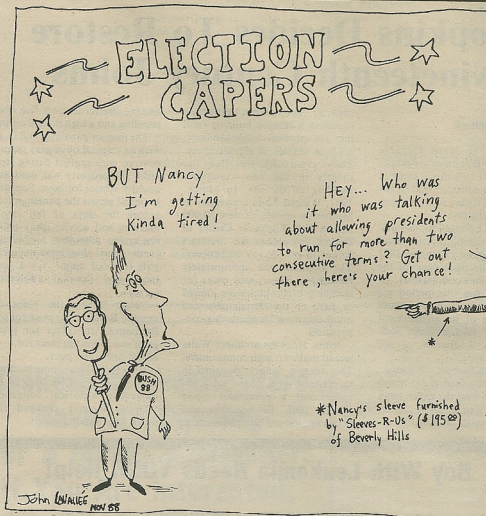 ELECTION
CAPERS
BUT Nancy
I'm getting
kinda tired!
HEY... Who was
it who was talking
about allowing presidents
to run for more than two
consecutive terms? Get out
there, here's your chance!
BUSH
88
*
*Nancy's sleeve furnished
by "Sleeves-R-Us" ($195⁰⁰)
of Beverly Hills
John LAVALLEE
NOV. 88